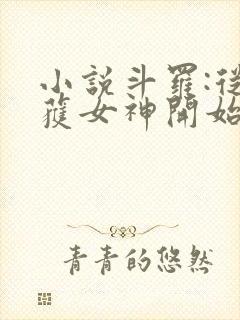 小說斗羅:從
獲女神開始
青青的悠然